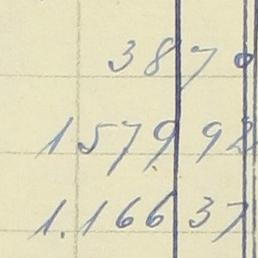 38 70
1579 92
1.166 37